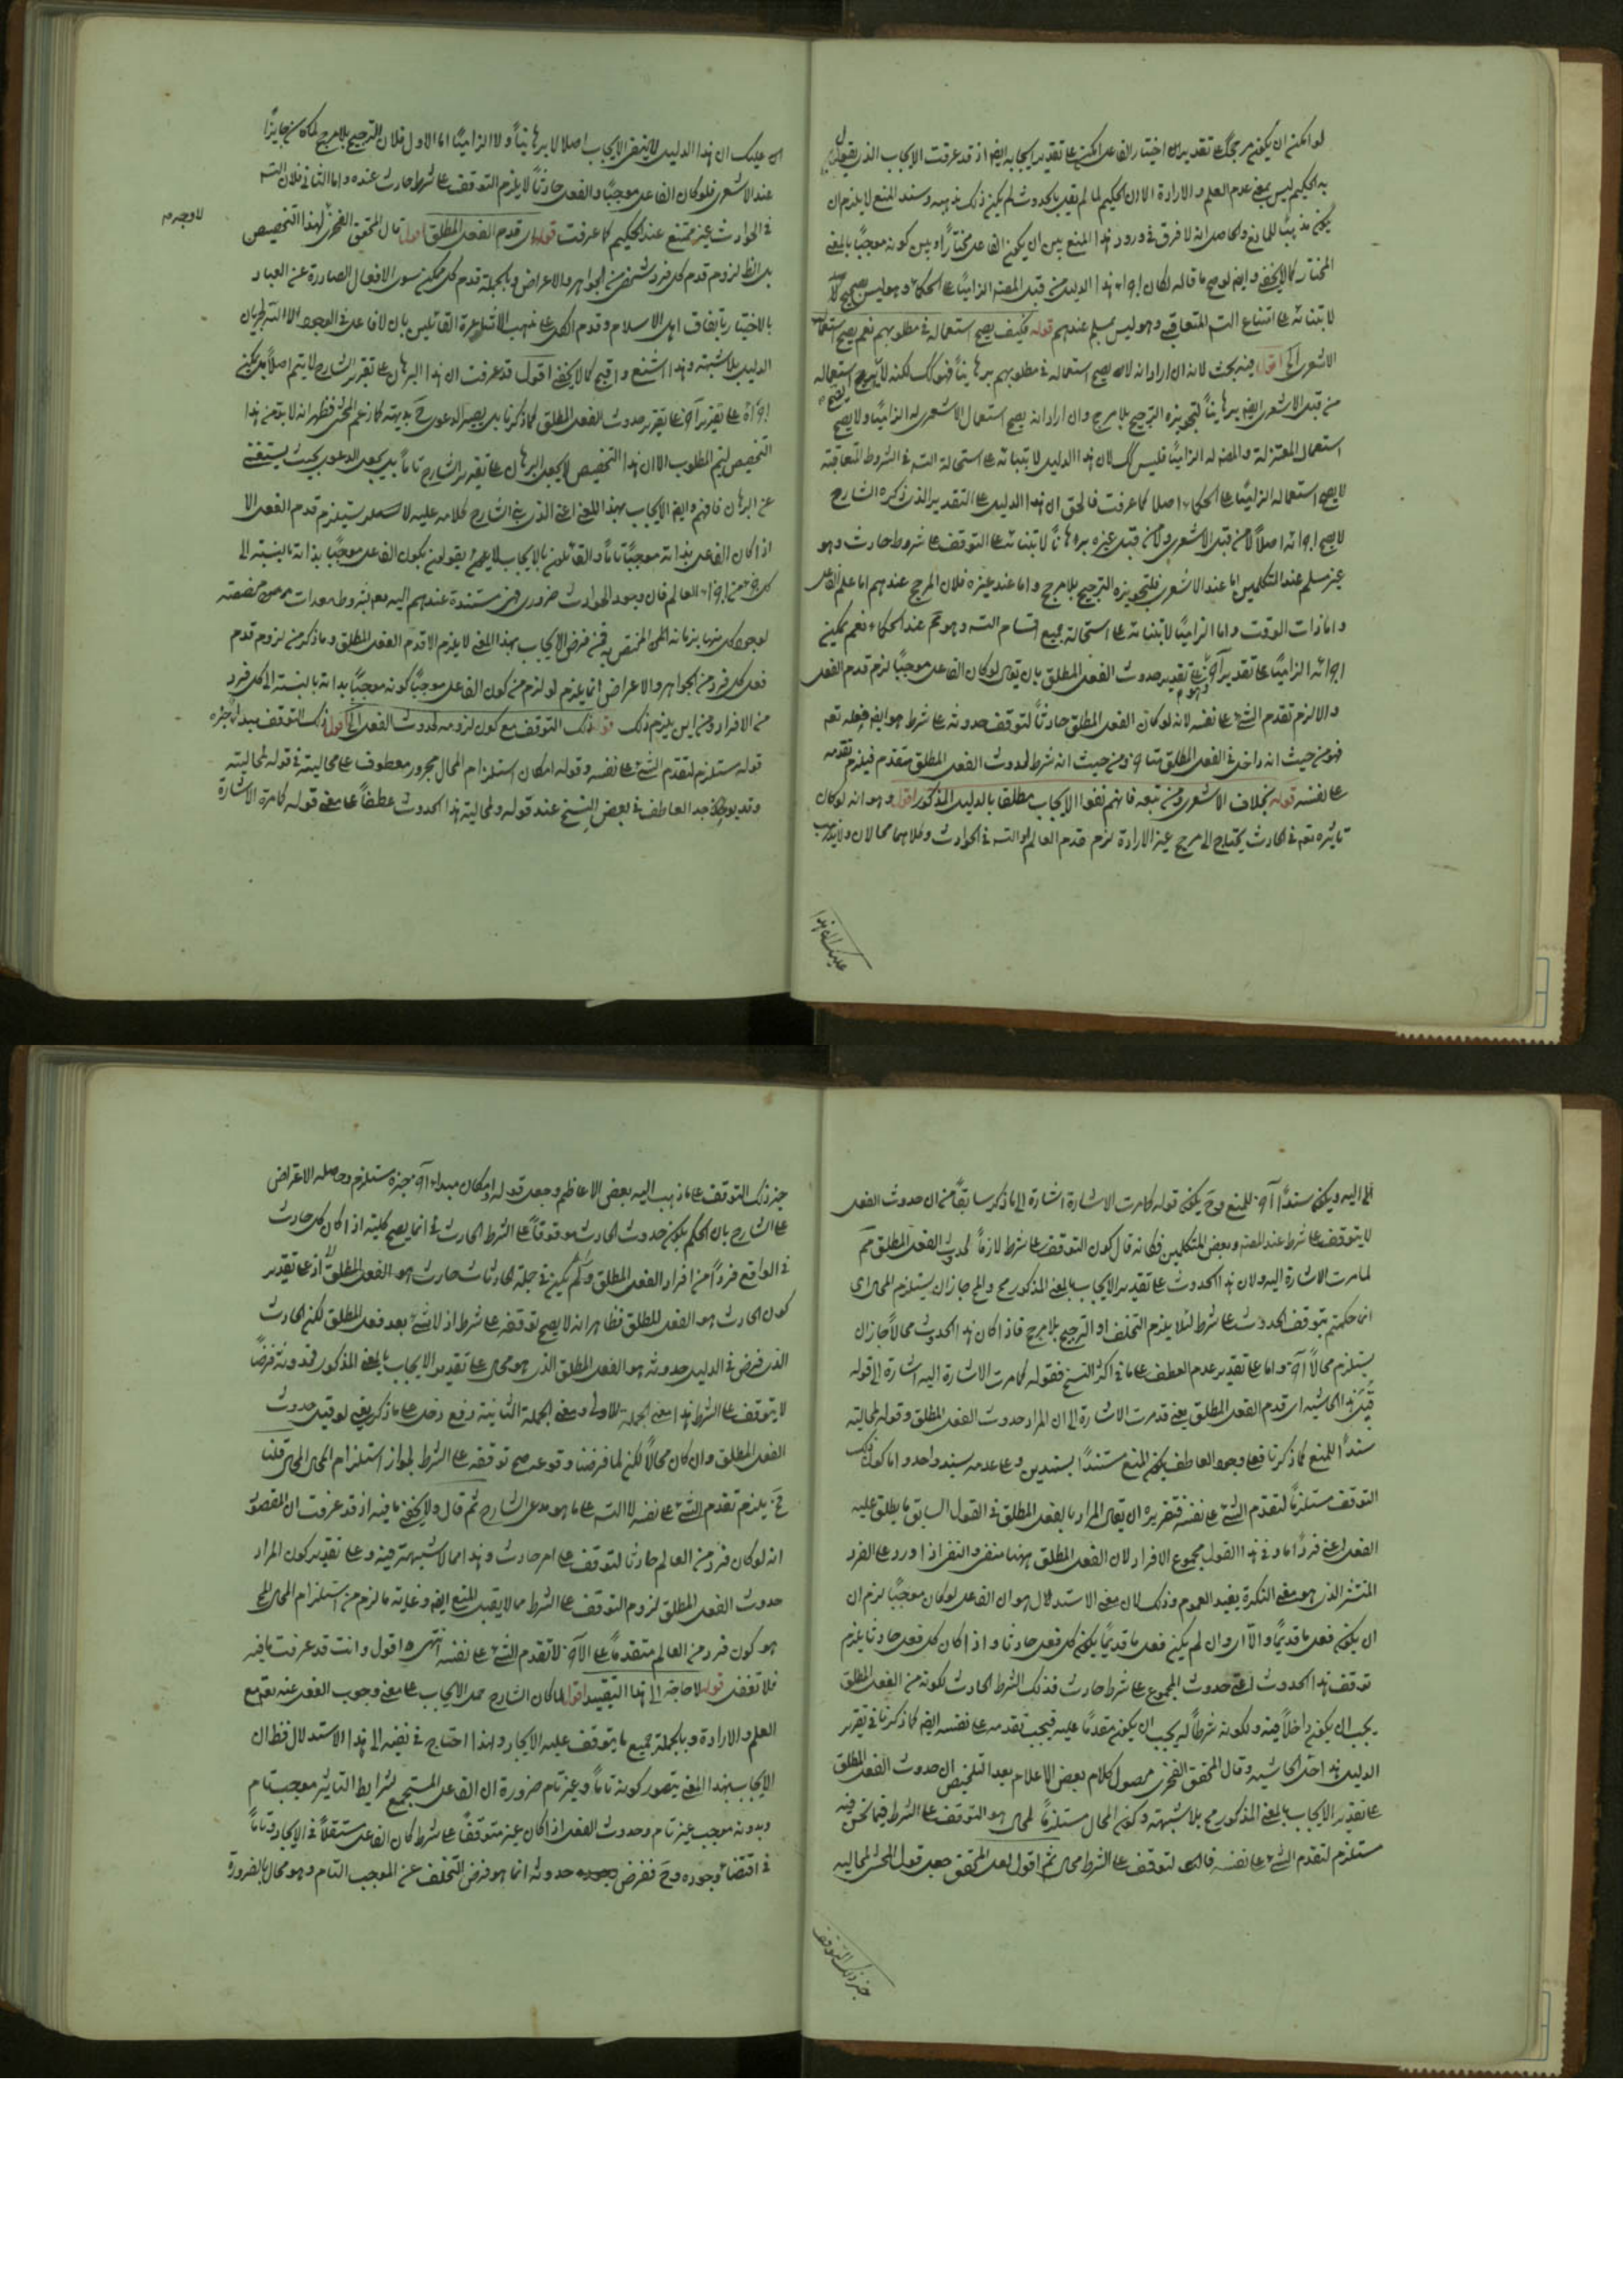 لو امكن ان يكون مرجحًا على تقدير ان اختيار الفاعل امكن على تقدير ايجابه ايضا اذ قد عرفت الايجاب الذي يقول
به الحكيم ليس بمعنى عدم العلم والارادة الا ان الحكيم لما لم يقل بالحدوث لم يكن ذلك مذهبه وسند المنع لا يلزم ان
يكون مذهبًا للمانع والحاصل انه لا فرق في ورود هذا المنع بين ان يكون الفاعل مختارًا وبين كونه موجبًا بالمعنى
المختار كما لا يخفى وايضا لو صح ما قاله لكان اجراء هذا الدليل من قبل المعتزلة الزاميًا على الحكماء وهو ليس بصحيح
لابتنائه على امتناع التسلسل المتعاقبة وهو ليس بمسلم عندهم قوله فكيف يصح استعماله في مطلوبهم نعم يصح استعمال
الاشعري الخ اقول فيه بحث لانه ان اراد انه لا يصح استعماله في مطلوبهم برهانيًا فهو كك لكنه لا يصح استعماله
من قبل الاشعري ايضا برهانيًا لتجويزه الترجيح بلا مرجح وان اراد انه يصح استعمال الاشعري له الزاميًا ولا يصح
استعمال المعتزلة له الزاميًا فليس كك لان هذا الدليل لابتنائه على استحالة التسلسل في الشروط المتعاقبة
لا يصح استعماله الزاميًا على الحكماء اصلا كما عرفت فالحق ان هذا الدليل على التقدير الذي ذكره الشارح
لا يصح اجرائه اصلاً لا من قبل الاشعري ولا من قبل غيره برهانًا لابتنائه على التوقف على شروط حادث وهو
غير مسلم عند المتكلمين اما عند الاشعري فلتجويزه الترجيح بلا مرجح واما عند غيره فلان المرجح عندهم اما علم الفاعل
واما ذات الوقت واما الزاميًا لابتنائه على استحالة جميع اقسام التسلسل وهو ثم عند الحكماء نعم يمكن
اجرائه الزاميًا على تقدير آخر وهو على تقدير حدوث الفعل المطلق بان يقال لو كان الفاعل موجبًا لزم قدم الفعل
والا لزم تقدم الشيء على نفسه لانه لو كان الفعل المطلق حادثًا لتوقف حدوثه على شرط هو ايضا فعله تعالى
فهو من حيث انه داخل في الفعل المطلق متأخر ومن حيث انه شرط لحدوث الفعل المطلق متقدم فيلزم تقدمه
على نفسه قوله بخلاف الاشعري ومن تبعه فانهم نفوا الايجاب مطلقا بالدليل المذكور اقول وهو انه لو كان
تأثيره تعالى في الحادث يحتاج الى مرجح غير الارادة لزم قدم العالم او التسلسل في الحوادث وكلاهما محالان ولا يذهب
عليك ان هذا
عليك ان هذا الدليل لا ينفي الايجاب اصلا لا برهانيًا ولا الزاميًا اما الاول فلان الترجيح بلا مرجح لما كان جايزًا
عند الاشعري فلو كان الفاعل موجبًا والفعل حادثًا لا يلزم التوقف على شرط حادث عنده واما الثاني فلان التسلسل
في الحوادث غير ممتنع عند الحكيم كما عرفت قوله اي قدم الفعل المطلق اقول قال المحقق الفخري لهذا التخصيص
لا وجه م
بل الظ لزوم قدم كل فرد شخص من الجواهر والاعراض وبالجملة قدم كل ممكن سوى الافعال الصادرة عن العباد
بالاختيار باتفاق اهل الاسلام وقدم الكل على مذهب الاشاعرة القائلين بان لا فاعل في الوجود الا الله لجريان
الدليل بلا شبهة وهذا اشنع واقبح كما لا يخفى اقول قد عرفت ان هذا البرهان على تقرير الشارح لا يتم اصلاً بل يمكن
اجراؤه على تقرير آخر على تقرير حدوث الفعل المطلق كما ذكرنا بل يصير الدعوى ح بديهته كما زعم المحشي فظهر انه لا بد من هذا
التخصيص ليتم المطلوب الا ان هذا التخصيص لا يجعل البرهان على تقرير الشارح تامًا بل يجعل الدعوى بحيث يستغنى
عن البرهان فافهم وايضا الايجاب بهذا المعنى اعني الذي بنى الشارح كلامه عليه لا يستلزم قدم الفعل الا
اذا كان الفاعل بذاته موجبًا تامًا والقائلون بالايجاب لا يقولون بكون الفاعل موجبًا بذاته بالنسبة الى
كل جزء من اجزاء العالم فان وجود الحوادث ضروري فهي مستندة عندهم اليه مع شروط ومعدات مخصصة
لوجود كل منها بزمانه المختص به فمن فرض الايجاب بهذا المعنى لا يلزم الا قدم الفعل المطلق وما ذكر من لزوم قدم
فعل كل فرد من الجواهر والاعراض انما يلزم لو لزم من كون الفاعل موجبًا كونه موجبًا بذاته بالنسبة الى كل فرد
من الافراد ومن اين يلزم ذلك قوله ذلك التوقف مع كون لزومه لحدوث الفعل الخ اقول ذلك التوقف مبتدأ خبره
قوله مستلزم لتقدم الشيء على نفسه وقوله امكان استلزام المحال مجرور معطوف على محاليته في قوله لمحاليته
وقد يوجد العاطف في بعض النسخ عند قوله ولمحالية هذا الحدوث عطفًا على معنى قوله كما مرت الاشارة
اليه ويكون سندًا آخر للمنع وح يكون قوله كما مرت الاشارة اشارة الى ما ذكر سابقًا من ان حدوث الفعل
لا يتوقف على شرط عند المعتزلة وبعض المتكلمين فكانه قال كون التوقف على شرط لازمًا لحدوث الفعل المطلق مم
لما مرت الاشارة اليه ولان هذا الحدوث على تقدير الايجاب بالمعنى المذكور مح والمح جاز ان يستلزم المحال اي
انما حكمتم بتوقف الحدوث على شرط لئلا يلزم التخلف او الترجيح بلا مرجح فاذا كان هذا الحدوث محالًا جاز ان
يستلزم محالًا آخر واما على تقدير عدم العطف على ما في اكثر النسخ فقوله كما مرت الاشارة اليه اشارة الى قوله
قبيل هذا الحاشية اي قدم الفعل المطلق يعني قد مرت الاشارة الى ان المراد حدوث الفعل المطلق وقوله لمحاليته
سندًا للمنع كما ذكرنا فعلى وجود العاطف يكون المنع مستندًا بسندين وعلى عدمه بسند واحد واما كون ذلك
التوقف مستلزمًا لتقدم الشيء على نفسه فتقريره ان يقال المراد بالفعل المطلق في القول السابق ما يطلق عليه
الفعل اعني فردًا ما وفي هذا القول مجموع الافراد لان الفعل المطلق ههنا منفي والنفي اذا ورد على الفرد
المنتشر الذي هو معنى النكرة يفيد العموم وذلك لان معنى الاستدلال هو ان الفاعل لو كان موجبًا لزم ان
ان يكون فعل ما قديمًا والا اي وان لم يكن فعل ما قديمًا يكون كل فعل حادثا واذا كان كل فعل حادثا يلزم
توقف هذا الحدوث اعني حدوث المجموع على شرط حادث فذلك الشرط الحادث لكونه من الفعل المطلق
يجب ان يكون داخلًا فيه ولكونه شرطًا له يجب ان يكون متقدمًا عليه فيجب تقدمه على نفسه ايضا كما ذكرنا في تقرير
الدليل هذا حل الحاشيه وقال المحقق الفخري محصول كلام بعض الاعلام بعد التلخيص ان حدوث الفعل المطلق
على تقدير الايجاب بالمعنى المذكور مح بلا شبهة وكون المحال مستلزمًا لمحال هو التوقف على الشرط فيما نحن فيه
مستلزم لتقدم الشيء على نفسه فالتوقف على الشرط محال ثم اقول لعل المحقق جعل قول المحشي لمحاليه
خبر ذلك التوقف
خبر ذلك التوقف على ما ذهب اليه بعض الاعاظم وجعل قوله وامكان مبتدأ آخر خبره مستلزم وحاصله الاعتراض
على الشارح بان الحكم بكون حدوث الحادث موقوفًا على الشرط الحادث انما يصح كلية اذا كان كل حادث
في الواقع فردًا من افراد الفعل المطلق ولم يكن في جملة الحادثات حادث هو الفعل المطلق اذ على تقدير
كون الحادث هو الفعل المطلق فظاهر انه لا يصح توقفه على شرط اذ لا شيء بعد فعل المطلق لكن الحادث
الذي فرض في الدليل حدوثه هو الفعل المطلق الذي هو محال على تقدير الايجاب بالمعنى المذكور فحدوثه فرضًا
لا يتوقف على الشرط هذا معنى الجملة الاولى ومعنى الجملة الثانية دفع دخل على ما ذكر يعني لو قيل حدوث
الفعل المطلق وان كان محالًا لكن لما فرضنا وقوعه صح توقفه على الشرط لجواز استلزام المحال المحال قلنا
فح يلزم تقدم الشيء على نفسه لا التسلسل على ما هو مدعى الشارح ثم قال ولا يخفى ما فيه اذ قد عرفت ان المقصود
انه لو كان فرد من العالم حادثا لتوقف على امر حادث وهذا مما لا شبهة فيه وعلى تقدير كون المراد
حدوث الفعل المطلق لزوم التوقف على الشرط مما لا يقبل المنع ايضا وغاية ما لزم من استلزام المحال المح
هو كون فرد من العالم متقدمًا على الآخر لا تقدم الشيء على نفسه انتهى اقول وانت قد عرفت ما فيه
فلا تغفل قوله لا حاجة الى هذا التقييد اقول لما كان الشارح حمل الايجاب على معنى وجوب الفعل عنه تعالى مع
العلم والارادة وبالجملة جميع ما يتوقف عليه الايجاد ولهذا احتاج في نفيه الى هذا الاستدلال فظ ان
الايجاب بهذا المعنى يتصور كونه تامًا وغير تام ضرورة ان الفاعل المستجمع لشرايط التأثير موجب تام
وبدونه موجب غير تام وحدوث الفعل اذا كان غير متوقف على شرط كان الفاعل مستقلًا في الايجاد وتامًا
في اقتضاء وجوده وح ففرض حدوثه انما هو فرض التخلف عن الموجب التام وهو محال بالضرورة